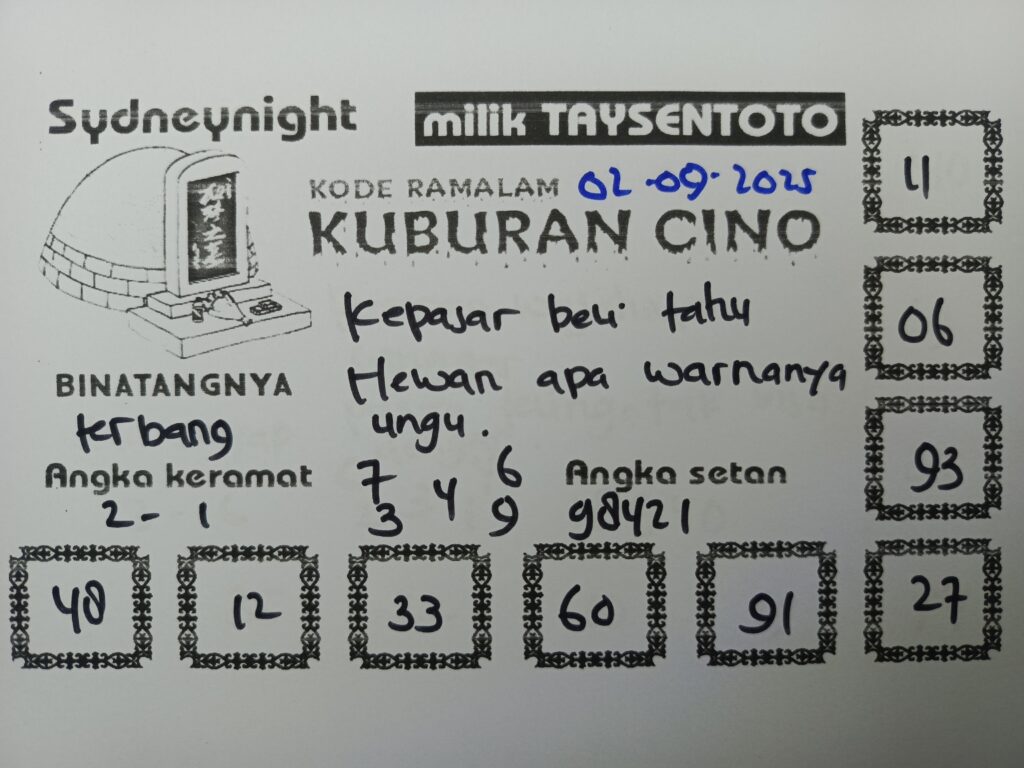 Sydneynight
milik TAYSENTOTO
KODE RAMALAM 02-09-2025
KUBURAN CINO
Kepasar beli tahu
Hewan apa warnanya
ungu.
BINATANGNYA
terbang
Angka keramat
2 - 1
7 6
4
3 9
Angka setan
98421
11
06
93
48 12 33 60 91 27